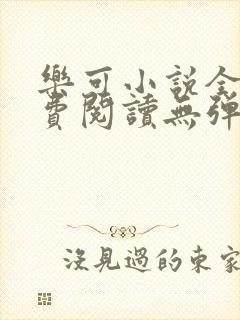 樂可小說全
費閱讀無彈
沒見過的東家